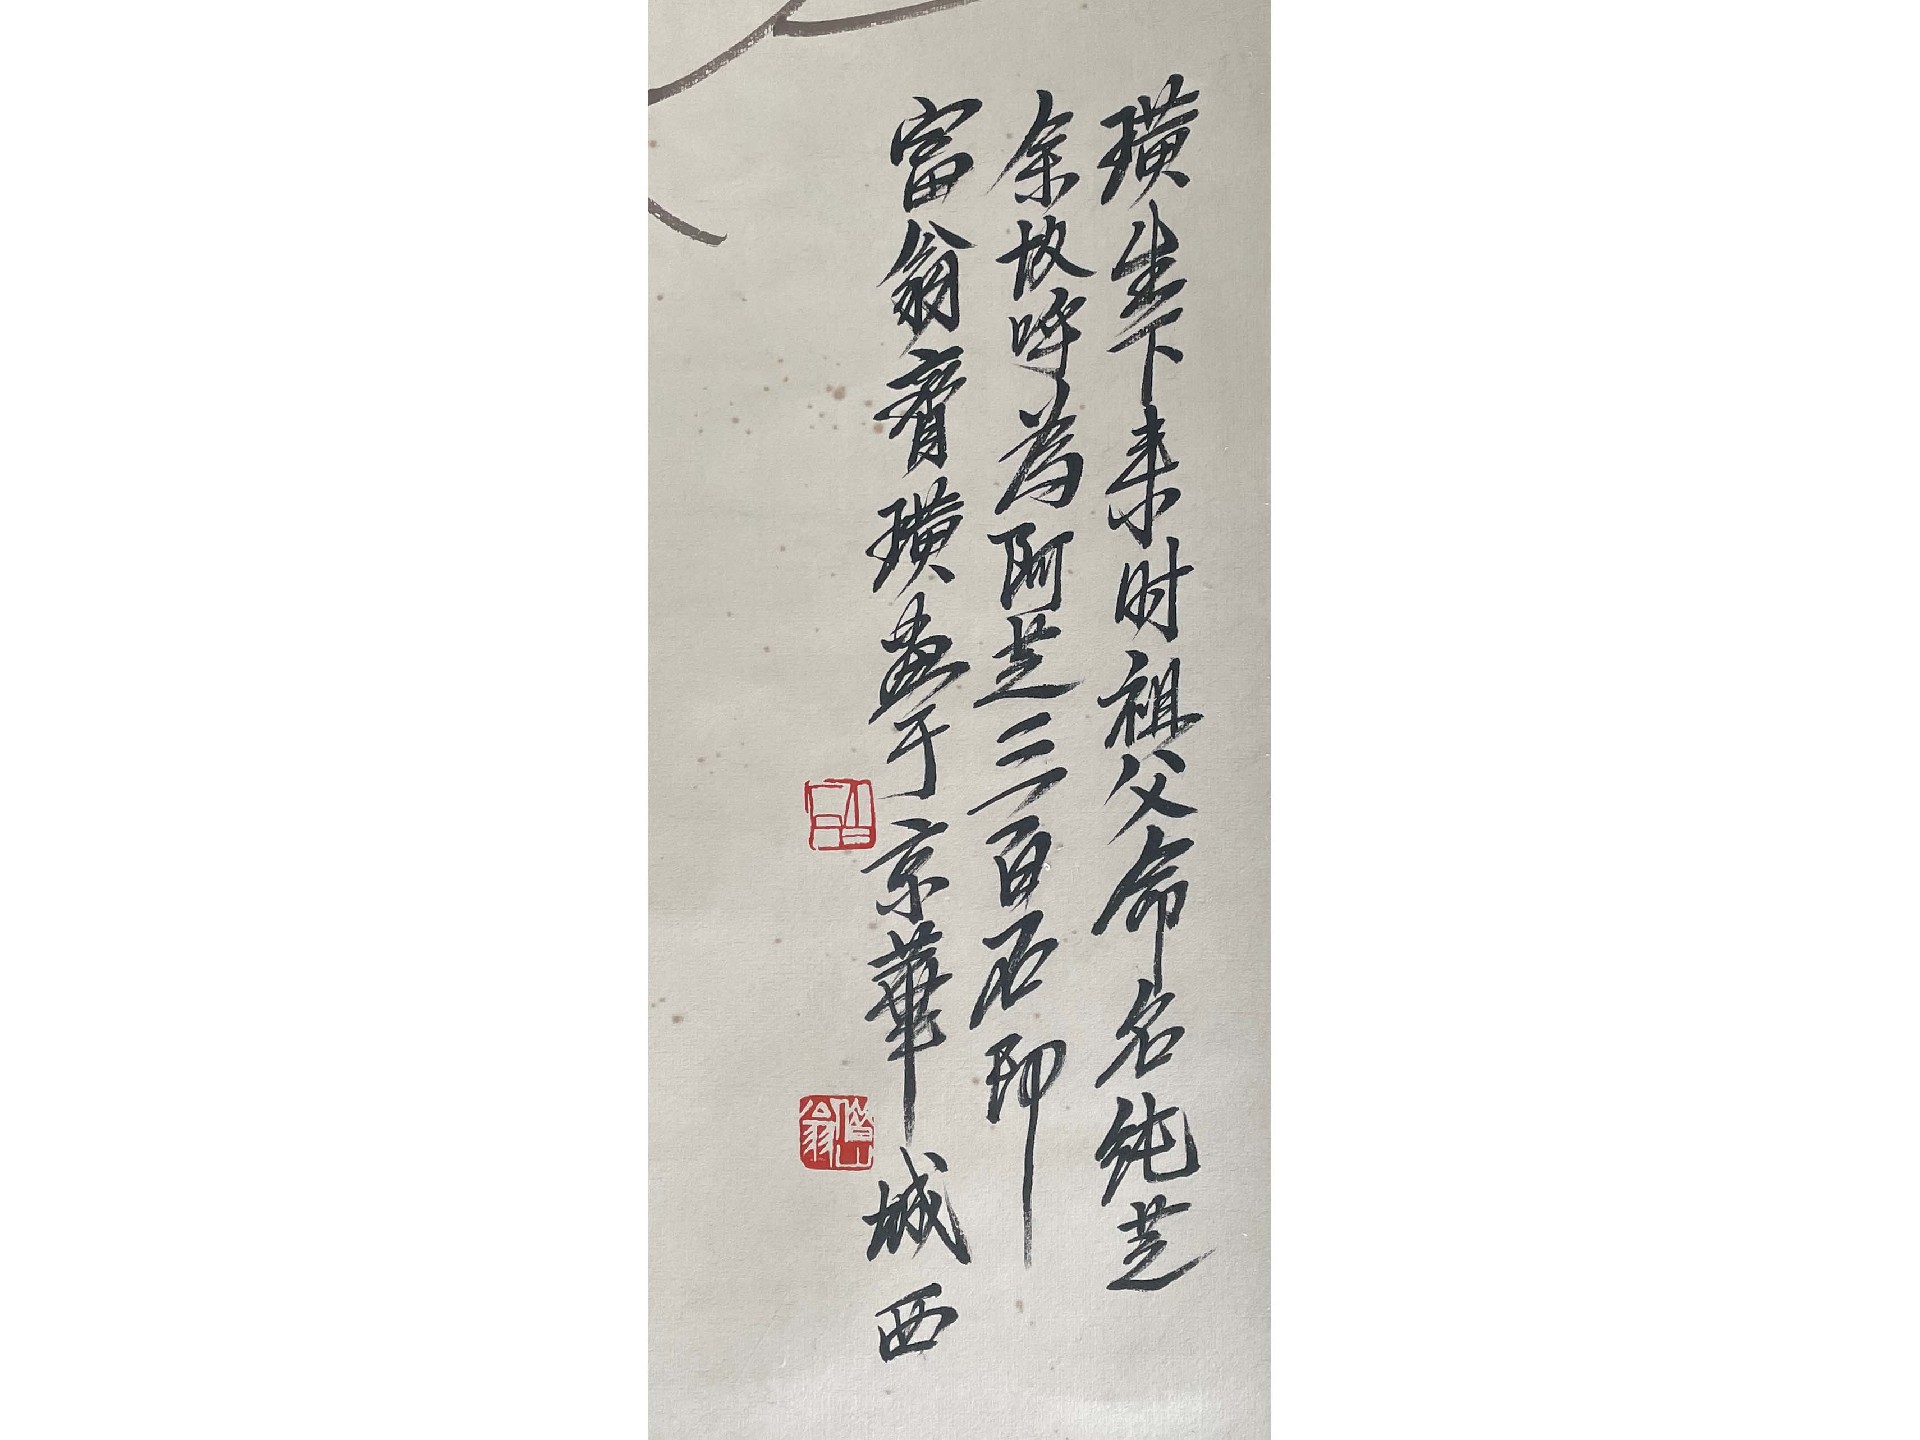 璜生下来时祖父命名纯芝
余故呼為阿芝三百石印
富翁齊璜畫于京華城西
借山翁